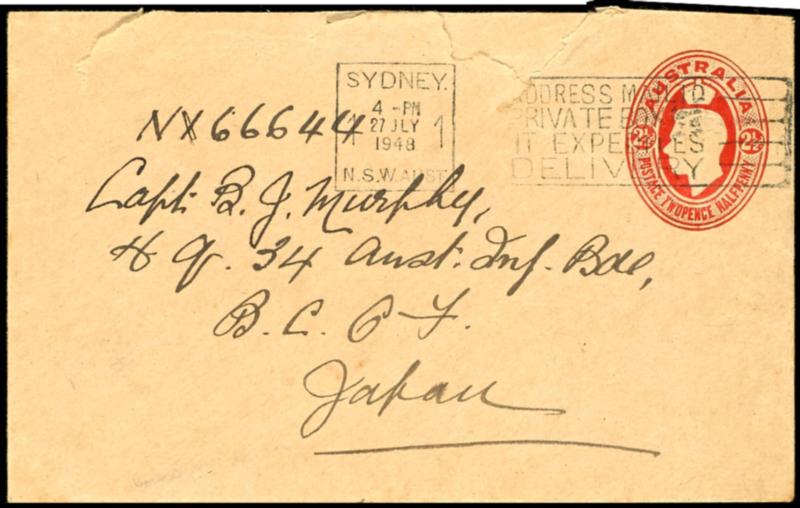 SYDNEY.
4 - PM
27 JLY
1948
N.S.W. AUST
ADDRESS MAIL TO
PRIVATE BOX
IT EXPEDITES
DELIVERY
AUSTRALIA
2½ 2½
POSTAGE TWOPENCE HALFPENNY
NX66644
Capt. B. J. Murphy,
H Q. 34 Aust. Inf. Bde,
B. C. O F.
Japan